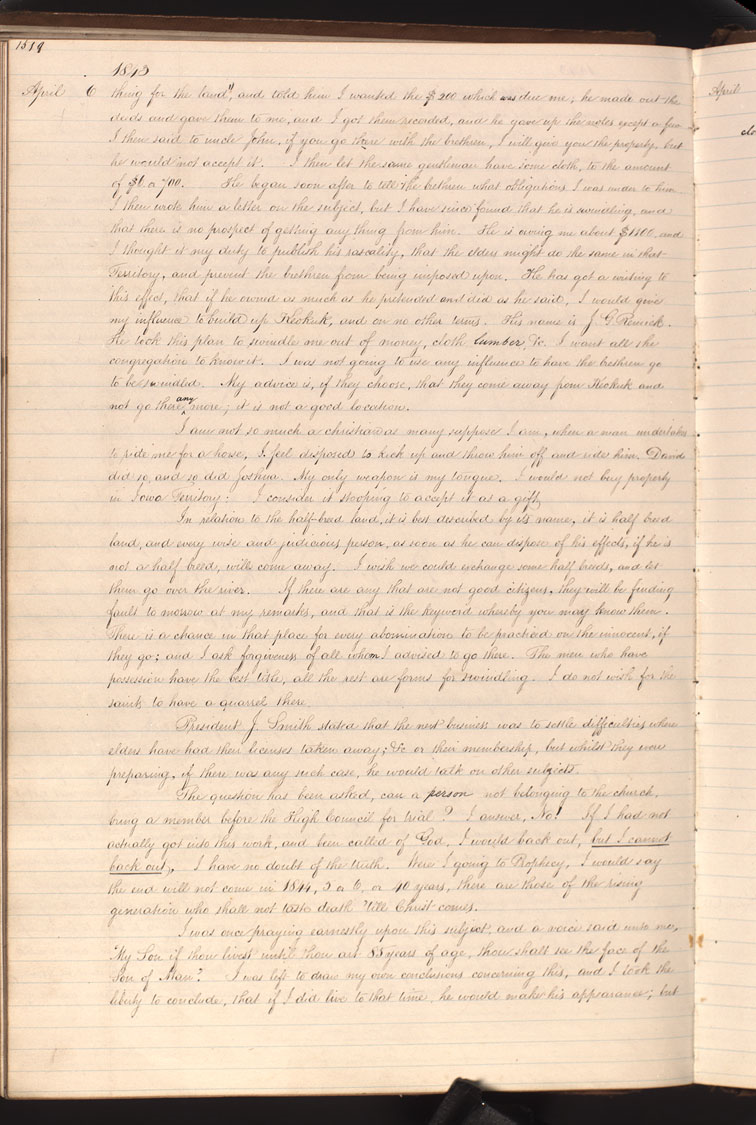 1519
1843
April 6 thing for the land", and told him I wanted the $200 which was due me; he made out the
deeds and gave them to me, and I got them recorded, and he gave up the notes except a few
I then said to uncle John, if you go there with the brethren, I will give you the property, but
he would not accept it. I then let the same gentleman have some cloth, to the amount
of $6 or 700. He began soon after to tell the brethren what obligations I was under to him
I then wrote him a letter on the subject, but I have since found that he is swindling, and
that there is no prospect of getting any thing from him. He is owing me about $1100, and
I thought it my duty to publish his rascality, that the elders might do the same in that
Territory, and prevent the brethren from being imposed upon. He has got a writing to
this effect, that if he owned as much as he pretended and did as he said, I would give
my influence to build up Keokuk, and on no other terms. His name is J. G. Remick.
He took this plan to swindle me out of money, cloth lumber, &c. I want all the
congregation to know it. I was not going to use any influence to have the brethren go
to be swindled. My advice is, if they choose, that they come away from Keokuk and
not go there any more; it is not a good location.
I am not so much a christian as many suppose I am, when a man undertakes
to ride me for a horse, I feel disposed to kick up and throw him off and ride him. David
did so, and so did Joshua. My only weapon is my tongue. I would not buy property
in Iowa Territory: I consider it stooping to accept it as a gift.
In relation to the half-breed land, it is best described by its name, it is half breed
land, and every wise and judicious person, as soon as he can dispose of his effects, if he is
not a half breed, will come away. I wish we could exchange some half breeds, and let
them go over the river. If there are any that are not good citizens, they will be finding
fault to morrow at my remarks, and that is the keyword whereby you may know them.
There is a chance in that place for every abomination to be practiced on the innocent, if
they go; and I ask forgiveness of all whom I advised to go there. The men who have
possession have the best title, all the rest are forms for swindling. I do not wish for the
saints to have a quarrel there.
President J. Smith stated that the next business was to settle difficulties where
elders have had their licenses taken away; &c or their membership, but whilst they were
preparing, if there was any such case, he would talk on other subjects.
The question has been asked, can a person not belonging to the church,
bring a member before the High Council for trial? I answer, No! If I had not
actually got into this work, and been called of God, I would back out, but I cannot
back out, I have no doubt of the truth. Were I going to Prophecy, I would say
the end will not come in 1844, 5 or 6, or 40 years, there are those of the rising
generation who shall not taste death 'till Christ comes.
I was once praying earnestly upon this subject, and a voice said unto me,
"My Son if thou livest until thou art 85 years of age, thou shalt see the face of the
Son of Man." I was left to draw my own conclusions concerning this, and I took the
liberty to conclude, that if I did live to that time, he would make his appearance; but
April